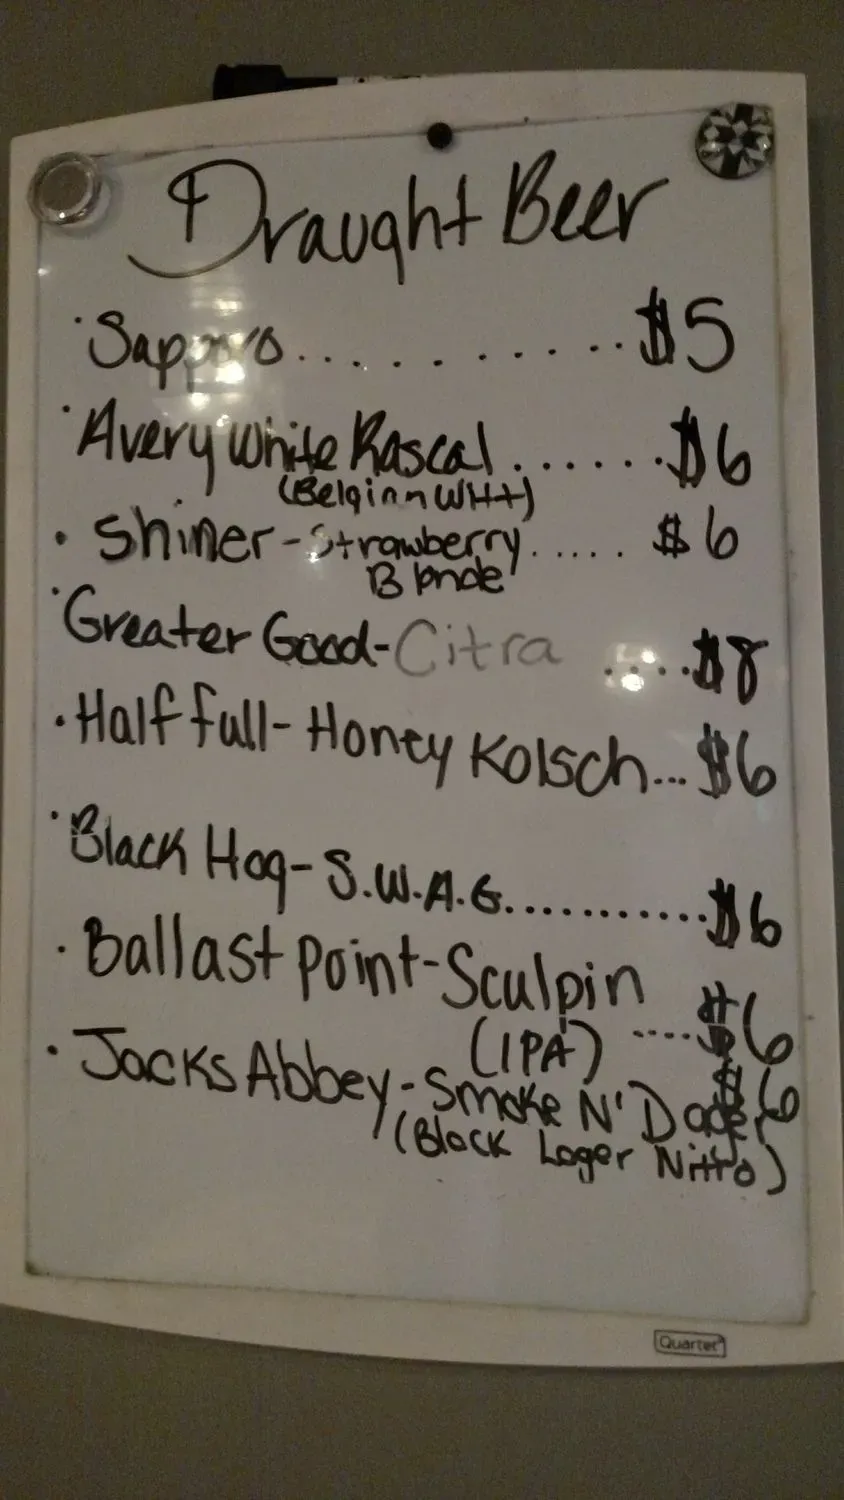 Draught Beer
· Sapporo........... $5
· Avery White Rascal....... $6
(Belgian Wht)
· Shiner - Strawberry..... $6
Blonde
· Greater Good - Citra .... $8
· Half full - Honey Kolsch... $6
· Black Hog - S.W.A.G........... $6
· Ballast Point - Sculpin
(IPA) .... $6
· Jacks Abbey - Smoke N' Dager $6
(Black Lager Nitro)
Quartet